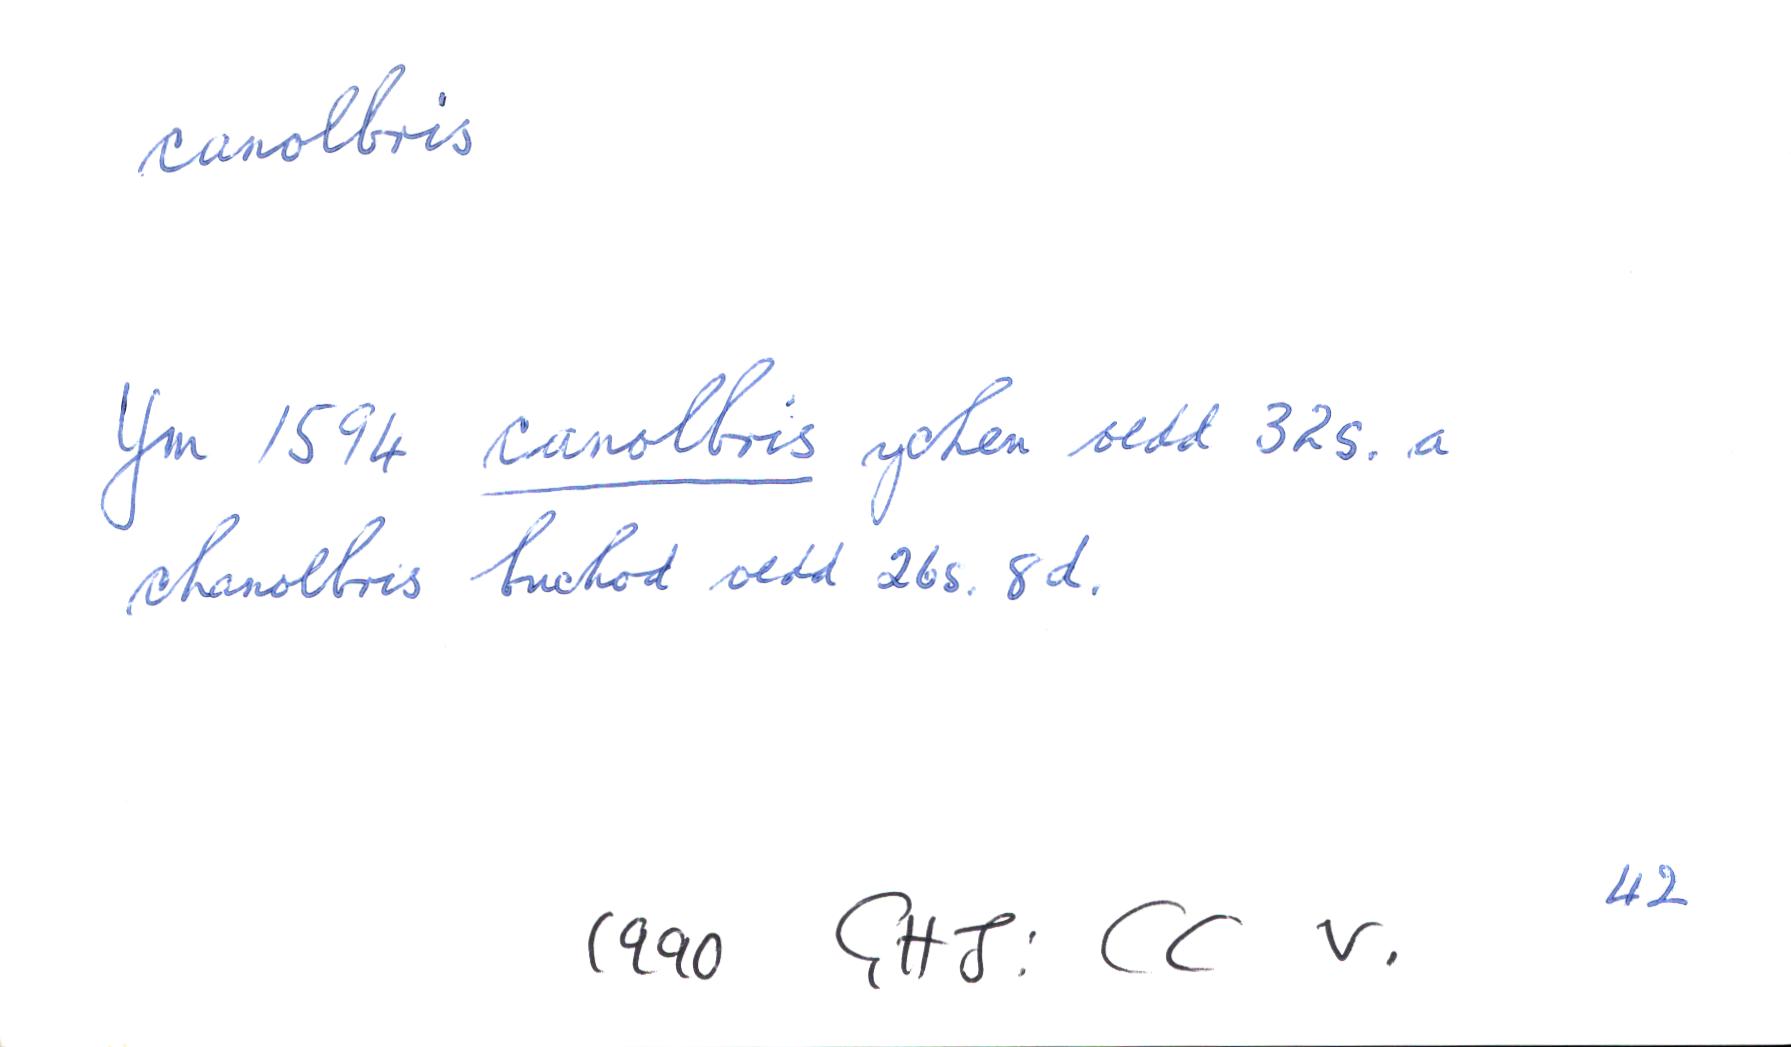 canolbris
Ym 1594 canolbris ychen oedd 32s. a
chanolbris buchod oedd 26s. 8d.
42
1990 GHJ: CC V.